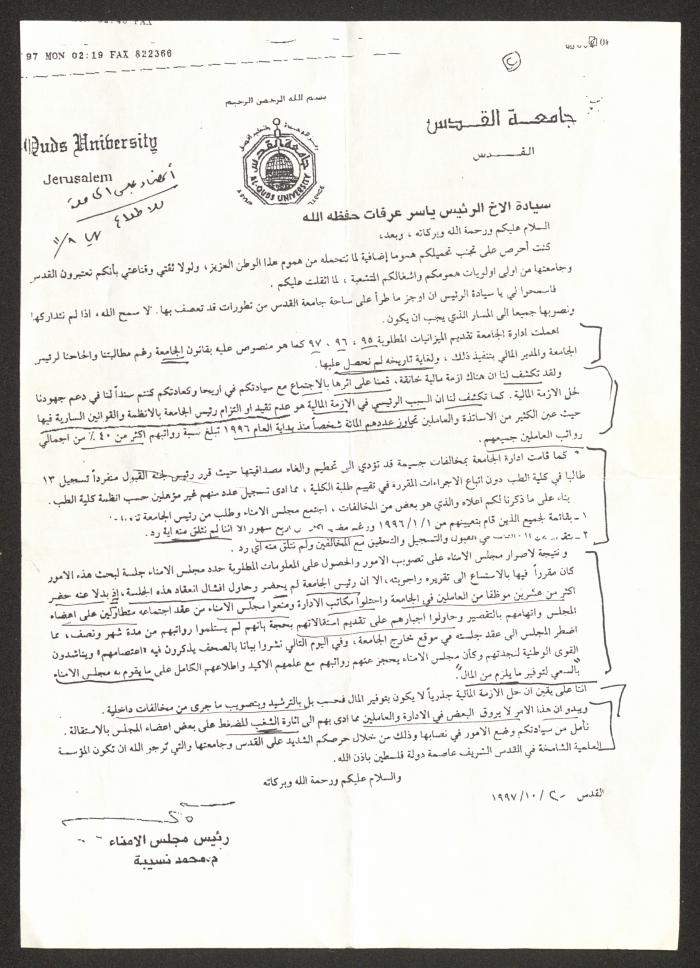 97 MON 02:19 FAX 822366
بسم الله الرحمن الرحيم
Quds University
Jerusalem
جامعة القدس
القدس
جامعة القدس
AL-QUDS UNIVERSITY
أعضاء مجلس الجامعة
للاطلاع
سيادة الاخ الرئيس ياسر عرفات حفظه الله
السلام عليكم ورحمة الله وبركاته ، وبعد،
كنت أحرص على تجنب تحميلكم هموما إضافية لما تتحمله من هموم هذا الوطن العزيز، ولولا ثقتي وقناعتي بأنكم تعتبرون القدس
وجامعتها من اولى اولويات همومكم واشغالكم المتشعبة ، لما اثقلت عليكم .
فاسمحوا لي يا سيادة الرئيس ان اوجز ما طرأ على ساحة جامعة القدس من تطورات قد تعصف بها. لا سمح الله، اذا لم نتداركها
ونصوبها جميعا الى المسار الذي يجب ان يكون.
اهملت ادارة الجامعة تقديم الميزانيات المطلوبة ٩٥ ، ٩٦ ، ٩٧ كما هو منصوص عليه بقانون الجامعة رغم مطالبتنا والحاحنا لرئيس
الجامعة والمدير المالي بتنفيذ ذلك ، ولغاية تاريخه لم نحصل عليها.
ولقد تكشف لنا ان هناك ازمة مالية خانقة، قمنا على اثرها بالاجتماع مع سيادتكم في اريحا وكعادتكم كنتم سنداً لنا في دعم جهودنا
لحل الازمة المالية . كما تكشف لنا ان السبب الرئيسي في الازمة المالية هو عدم تقيد او التزام رئيس الجامعة بالانظمة والقوانين السارية فيها
حيث عين الكثير من الاساتذة والعاملين تجاوز عددهم المائة شخصاً منذ بداية العام ١٩٩٦ تبلغ نسبة رواتبهم اكثر من ٤٠ ٪ من اجمالي
رواتب العاملين جميعهم.
كما قامت ادارة الجامعة بمخالفات جسيمة قد تؤدي الى تحطيم والغاء مصداقيتها حيث قرر رئيس لجنة القبول منفرداً تسجيل ١٣
طالبا في كلية الطب دون اتباع الاجراءات المقررة في تقييم طلبة الكلية ، مما ادى تسجيل عدد منهم غير مؤهلين حسب انظمة كلية الطب.
بناء على ما ذكرنا لكم اعلاه والذي هو بعض من المخالفات ، اجتمع مجلس الامناء وطلب من رئيس الجامعة
١- بقائمة لجميع الذين قام بتعيينهم من ١٩٩٦/١/١ ورغم اربع شهور الا اننا لم نتلق منه اية رد.
٢- القبول والتسجيل والتحقيق مع المخالفين ولم نتلق منه أي رد .
و نتيجة لاصرار مجلس الامناء على تصويب الامور والحصول على المعلومات المطلوبة حدد مجلس الامناء جلسة لبحث هذه الامور
كان مقرراً فيها بالاستماع الى تقريره واجوبته، الا ان رئيس الجامعة لم يحضر وحاول افشال انعقاد هذه الجلسة، إذ بدلا عنه حضر
اكثر من عشرين موظفا من العاملين في الجامعة واحتلوا مكاتب الادارة ومنعوا مجلس الامناء من عقد اجتماعه متطاولين على اعضاء
المجلس واتهامهم بالتقصير وحاولوا اجبارهم على تقديم استقالاتهم بحجة بانهم لم يستلموا رواتبهم من مدة شهر ونصف، مما
اضطر المجلس الى عقد جلسته في موقع خارج الجامعة، وفي اليوم التالي نشروا بيانا بالصحف يذكرون فيه «اعتصامهم» ويناشدون
القوى الوطنية لنجدتهم وكأن مجلس الامناء يحجز عنهم رواتبهم مع علمهم الاكيد واطلاعهم الكامل على ما يقوم به مجلس الامناء
بالسعي لتوفير ما يلزم من المال.
اننا على يقين ان حل الازمة المالية جذرياً لا يكون بتوفير المال فحسب بل بالترشيد وبتصويب ما جرى من مخالفات داخلية.
ويبدو ان هذا الامر لا يروق البعض في الادارة والعاملين مما ادى بهم الى اثارة الشغب للضغط على بعض اعضاء المجلس بالاستقالة .
نأمل من سيادتكم وضع الامور في نصابها وذلك من خلال حرصكم الشديد على القدس وجامعتها والتي نرجو الله ان تكون المؤسسة
العلمية الشامخة في القدس الشريف عاصمة دولة فلسطين باذن الله.
والسلام عليكم ورحمة الله وبركاته
القدس ٢٠ / ١٠ / ١٩٩٧
رئيس مجلس الامناء
م. محمد نسيبة